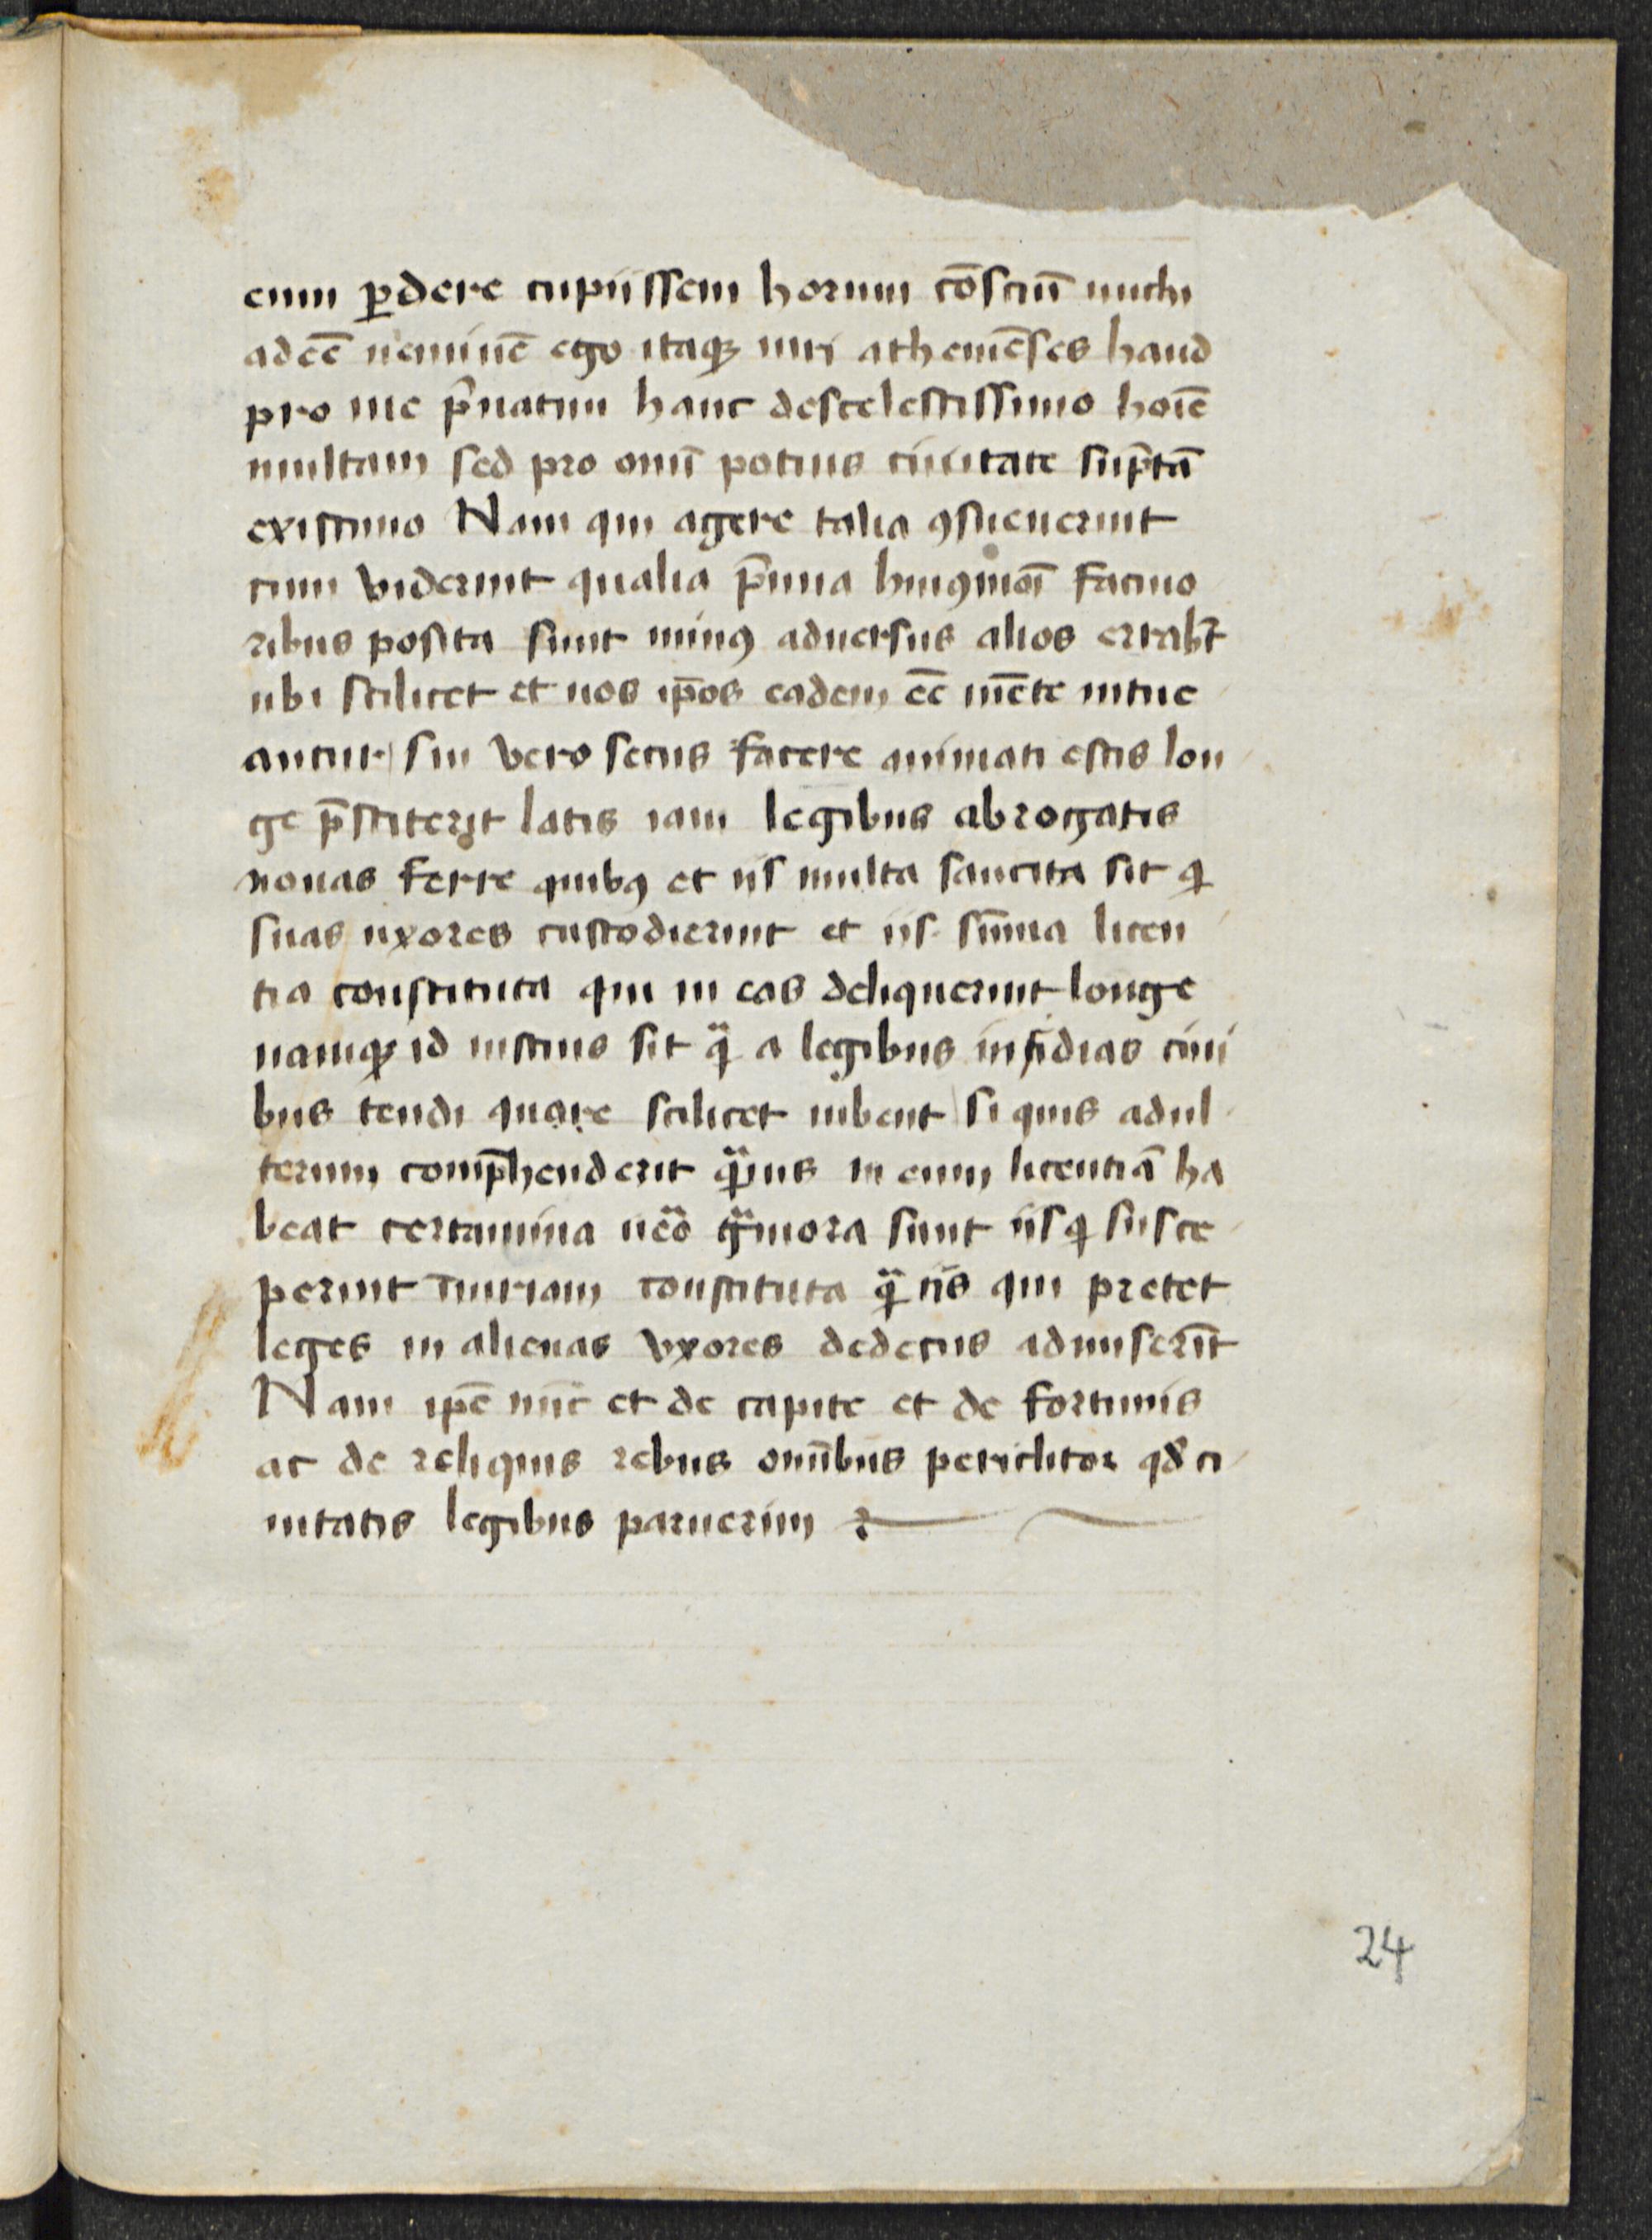 eum ꝑdere cupiissem horum cōsciū michi
adeē neminē ego itaqꝫ uiri atheniēses haud
pro me p̄uatim hanc descelestissimo hoīe
multam sed pro omī potius ciuitate sup̄tā
existimo Nam qui agere talia ꝯsueuerint
cum viderint qualia p̄mia huiꝰmōi facino
ribus posita sunt minꝰ aduersus alios errabt̄
ubi scilicet et uos ip̄os eadem eē mēte intue
antur sin vero secus facere animati estis lon
ge p̄stiterit latis iam legibus abrogatis
nouas ferre quibꝰ et iis multa sancita sit q
suas uxores custodierint et iis sūma licen
tia constituta qui in eas deliquerint longe
namqꝫ id iustius sit qᷓ a legibus insidias ciui
bus tendi quare scilicet iubent si quis adul
terum comp̄henderit qᷓuis in eum licentiā ha
beat certamina uēo gᷓuiora sunt iis q susce
perint iniuriam constituta qᷓ iis qui preter
leges in alienas vxores dedecus admiserīt
Nam ip̄e nūc et de capite et de fortunis
ac de reliquis rebus omībus periclitor qd ci
uitatis legibus paruerim
24